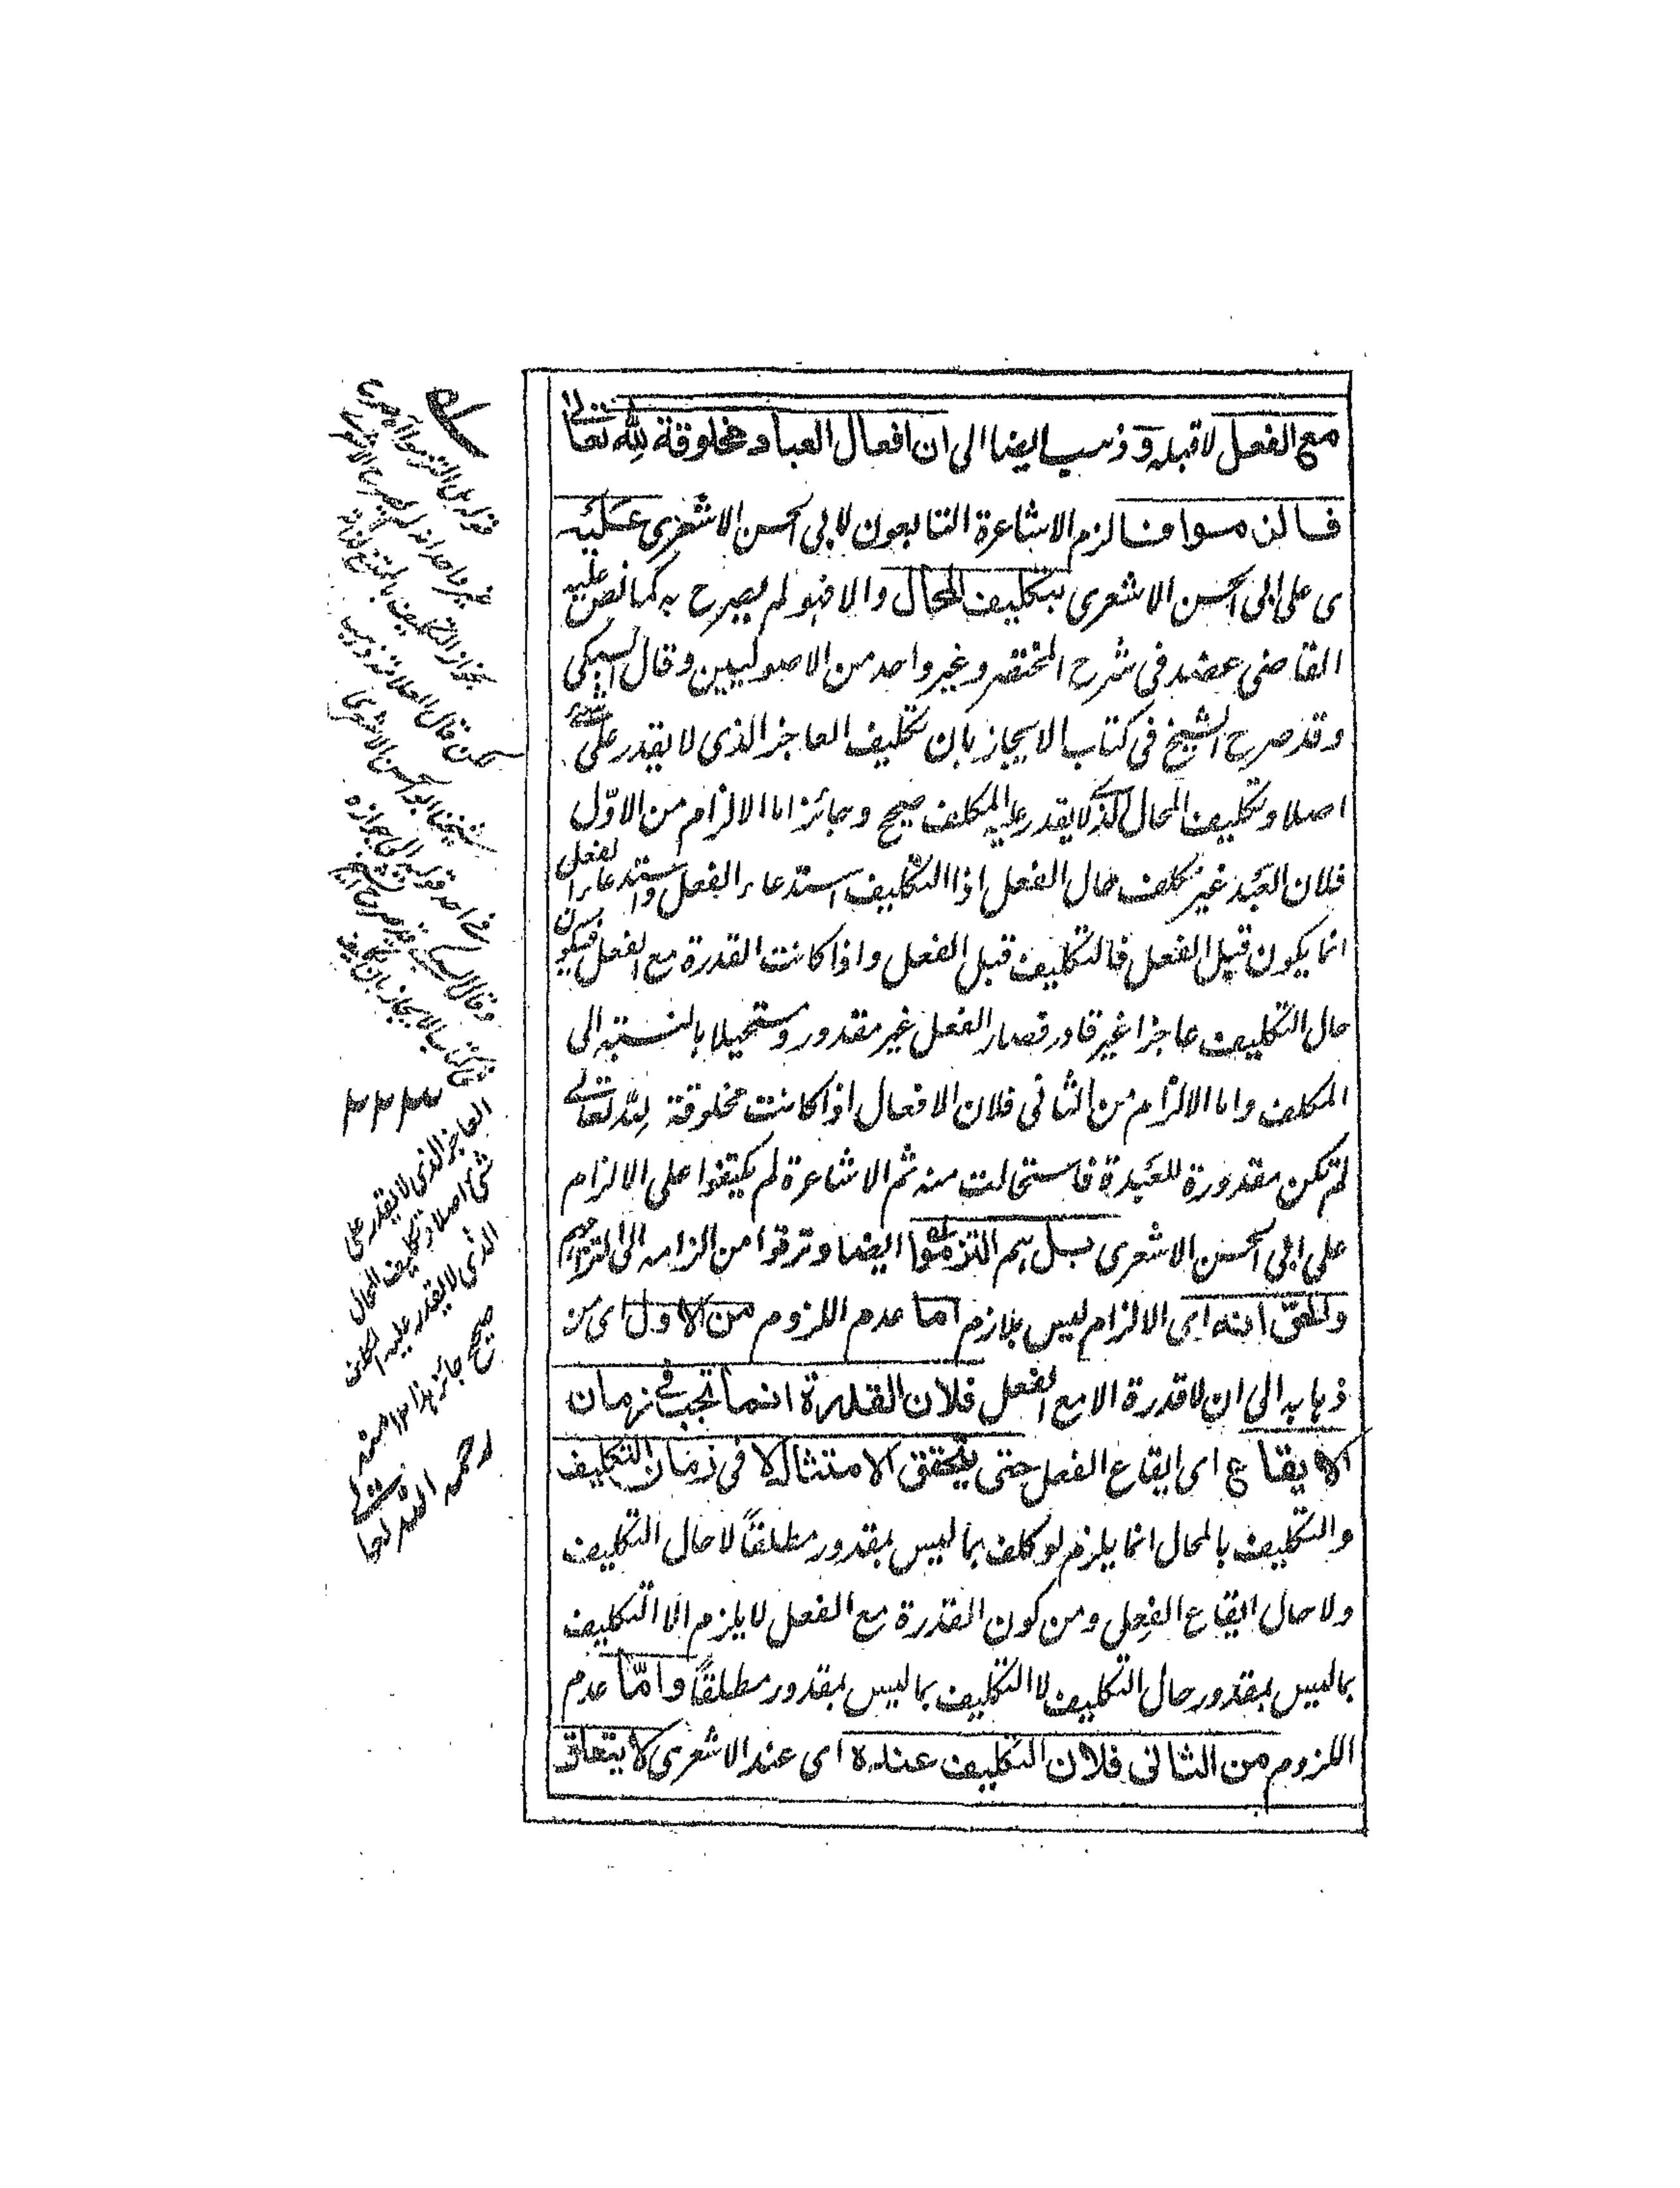 مع الفعل لا قبله و ذهب ايضا الى ان افعال العباد مخلوقة لله تعالى
فالزموا فالزم الاشاعرة التابعون لابي الحسن الاشعري عليه
ى على ابي الحسن الاشعري بتكليف المحال والا فهو لم يصرح به كما نص عليه
القاضي عضد في شرح المختصر وغير واحد من الاصوليين وقال السبكي
وقد صرح الشيخ في كتاب الايجاز بان تكليف العاجز الذي لا يقدر على شئ
اصلا وتكليف المحال الذي لا يقدر عليه المكلف صحيح وجائز اما الالزام من الاوّل
فلان العبد غير مكلف حال الفعل اذا التكليف استدعاء الفعل واستدعاء الفعل
انما يكون قبل الفعل فالتكليف قبل الفعل واذا كانت القدرة مع الفعل فيكون
حال التكليف عاجزا غير قادر فصار الفعل غير مقدور ومستحيلا بالنسبة الى
المكلف واما الالزام من الثاني فلان الافعال اذا كانت مخلوقة لله تعالى
لم تكن مقدورة للعبدة فاستحالت منه ثم الاشاعرة لم يكتفوا على الالزام
على ابي الحسن الاشعري بل هم التزموا ايضا وترقوا من الزامه الى التزامهم
والحقّ انه اى الالزام ليس بلازم اما عدم اللزوم من الاول اى من
ذهابه الى ان لا قدرة الا مع الفعل فلان القدرة انما تجب في زمان
الايقاع اى ايقاع الفعل حتى يتحقق الامتثال لا في زمان التكليف
والتكليف بالمحال انما يلزم لو كلف بما ليس بمقدور مطلقاً لا حال التكليف
ولا حال ايقاع الفعل ومن كون القدرة مع الفعل لا يلزم الا التكليف
بما ليس بمقدور حال التكليف لا التكليف بما ليس بمقدور مطلقاً واما عدم
اللزوم من الثاني فلان التكليف عنده اى عند الاشعري لا يتعلق
قوله بل التزموا
بجواز التكليف بالممتنع
قال العلامة
شيخنا ابو الحسن الاشعري
وقال السبكي
كتاب الايجاز بان تكليف
العاجز الذي لا يقدر على
شئ اصلا وتكليف المحال
الذي لا يقدر عليه المكلف
صحيح جائز هذا ١٢ منه
رحمه الله تعالى